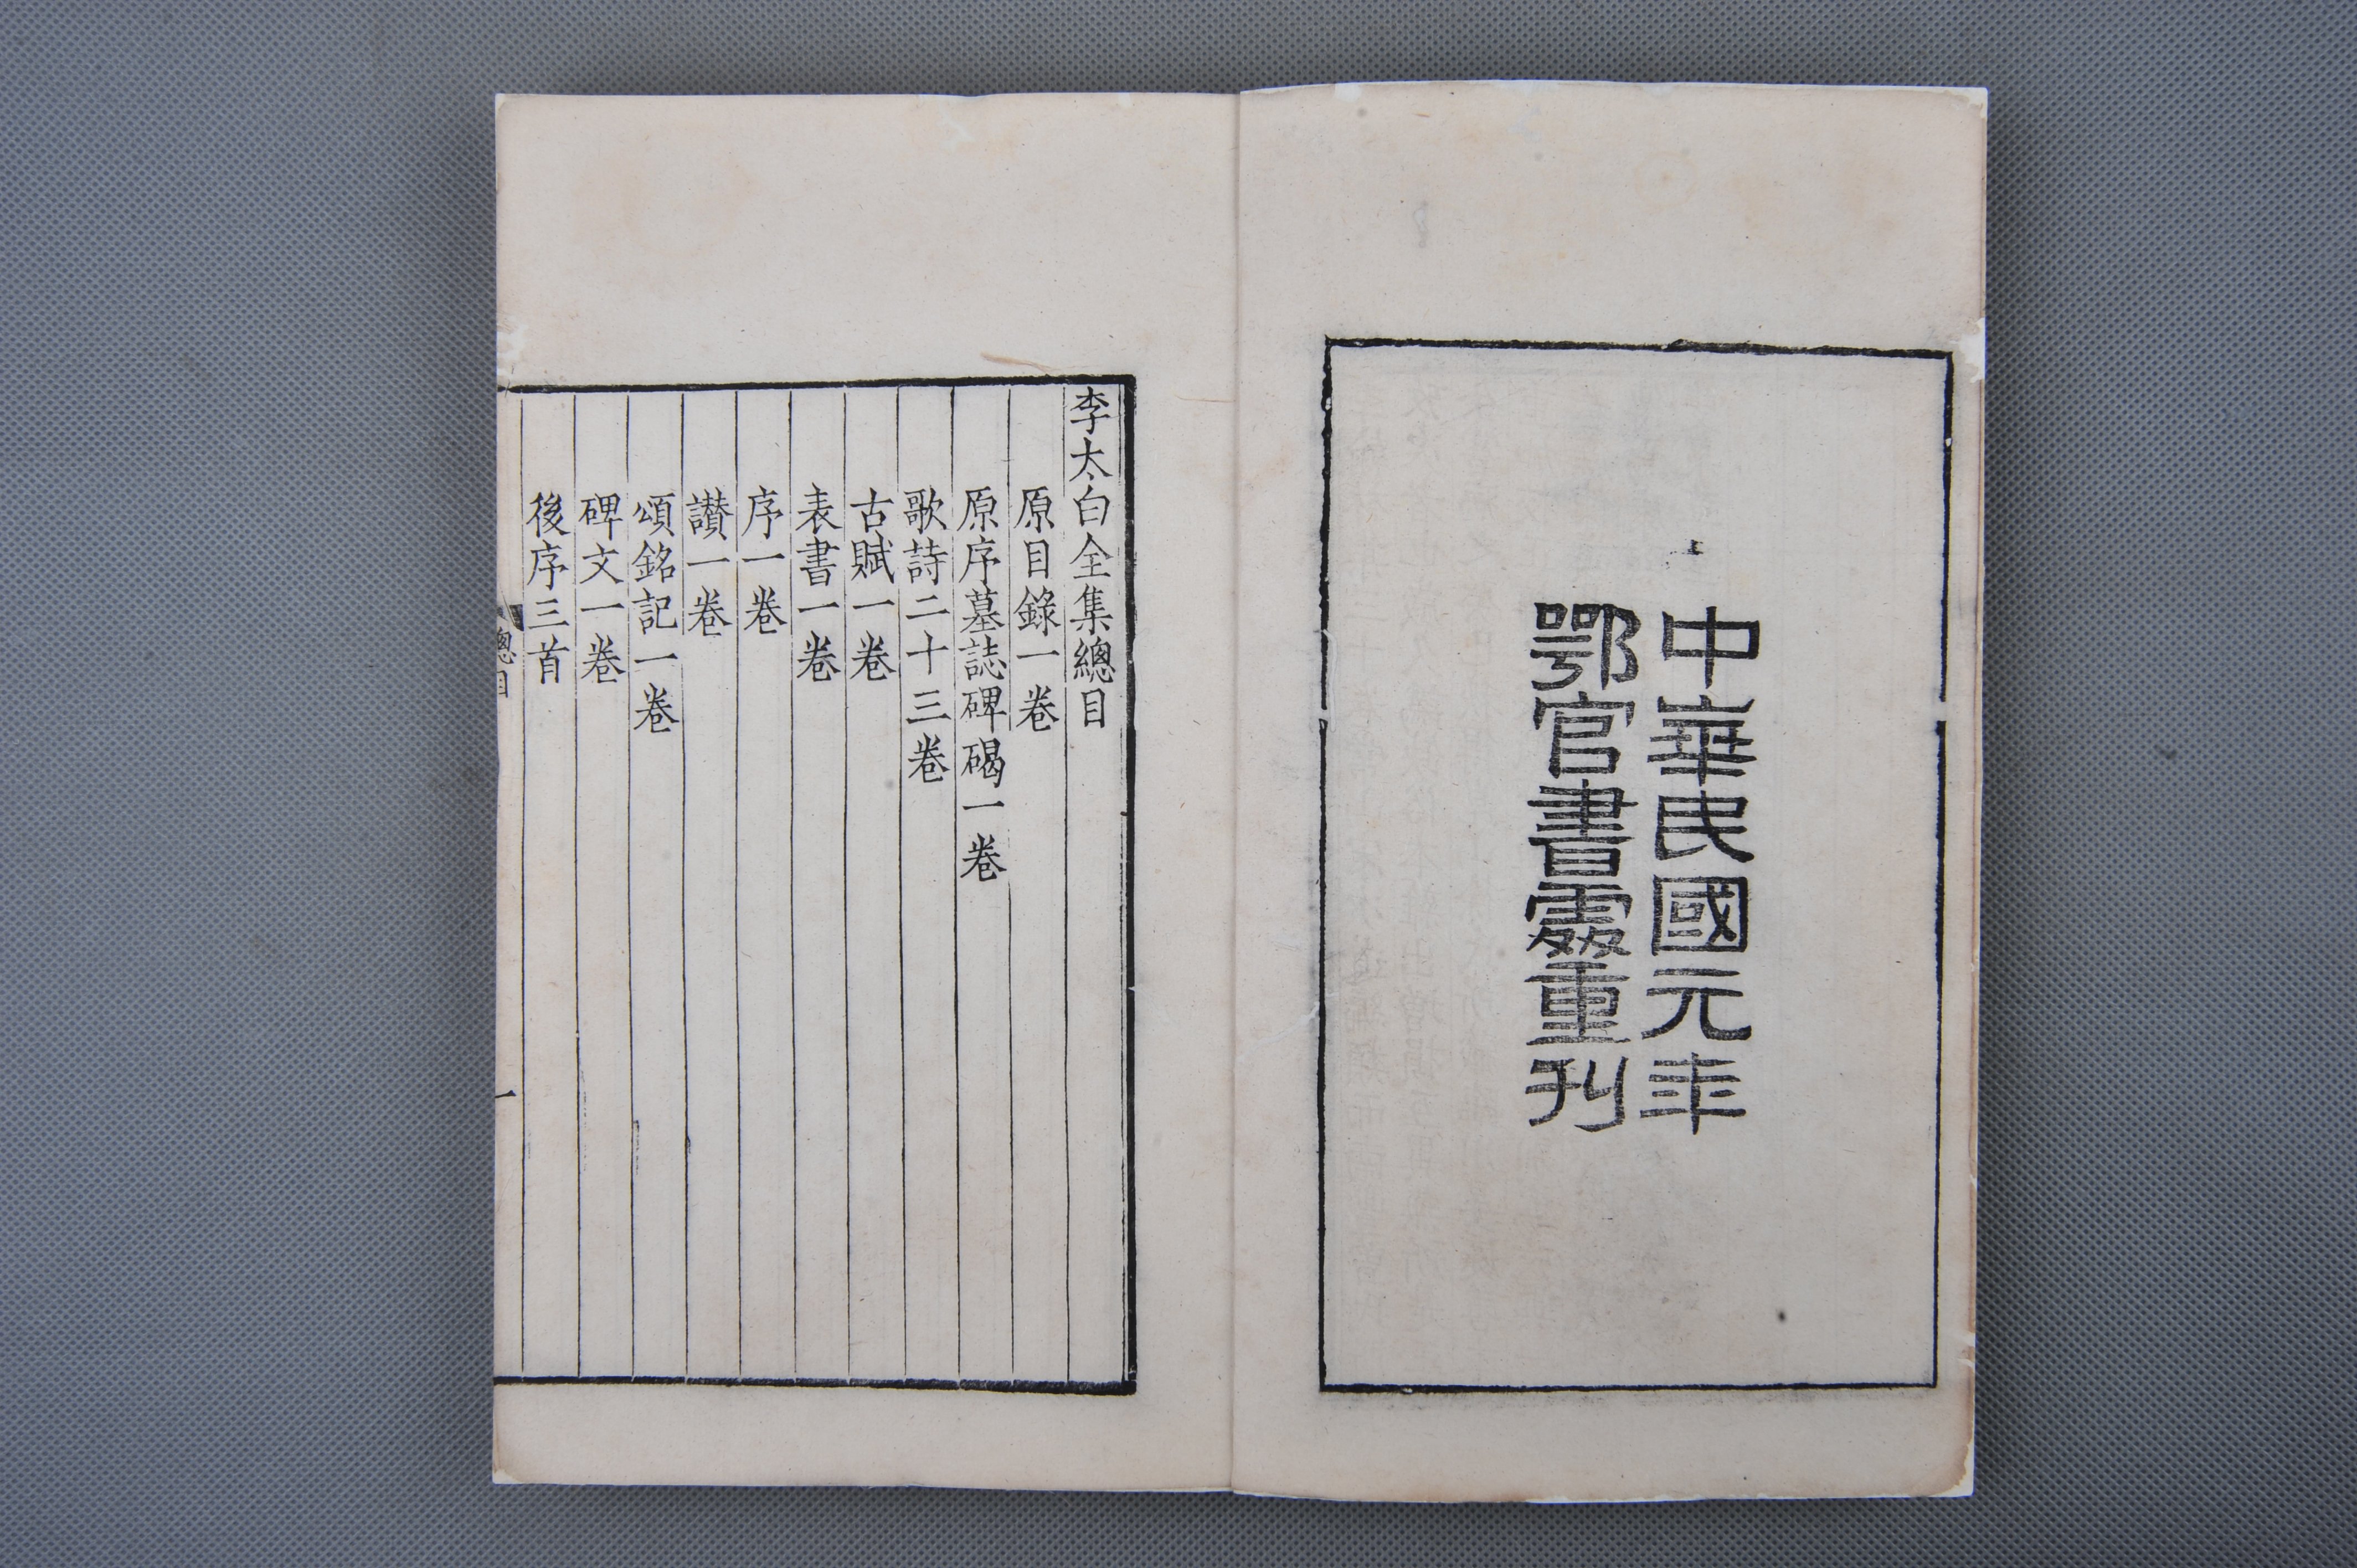 中華民國元年
鄂官書處重刊
李太白全集總目
原目錄一卷
原序墓誌碑碣一卷
歌詩二十三卷
古賦一卷
表書一卷
序一卷
讚一卷
頌銘記一卷
碑文一卷
後序三首
總目
一